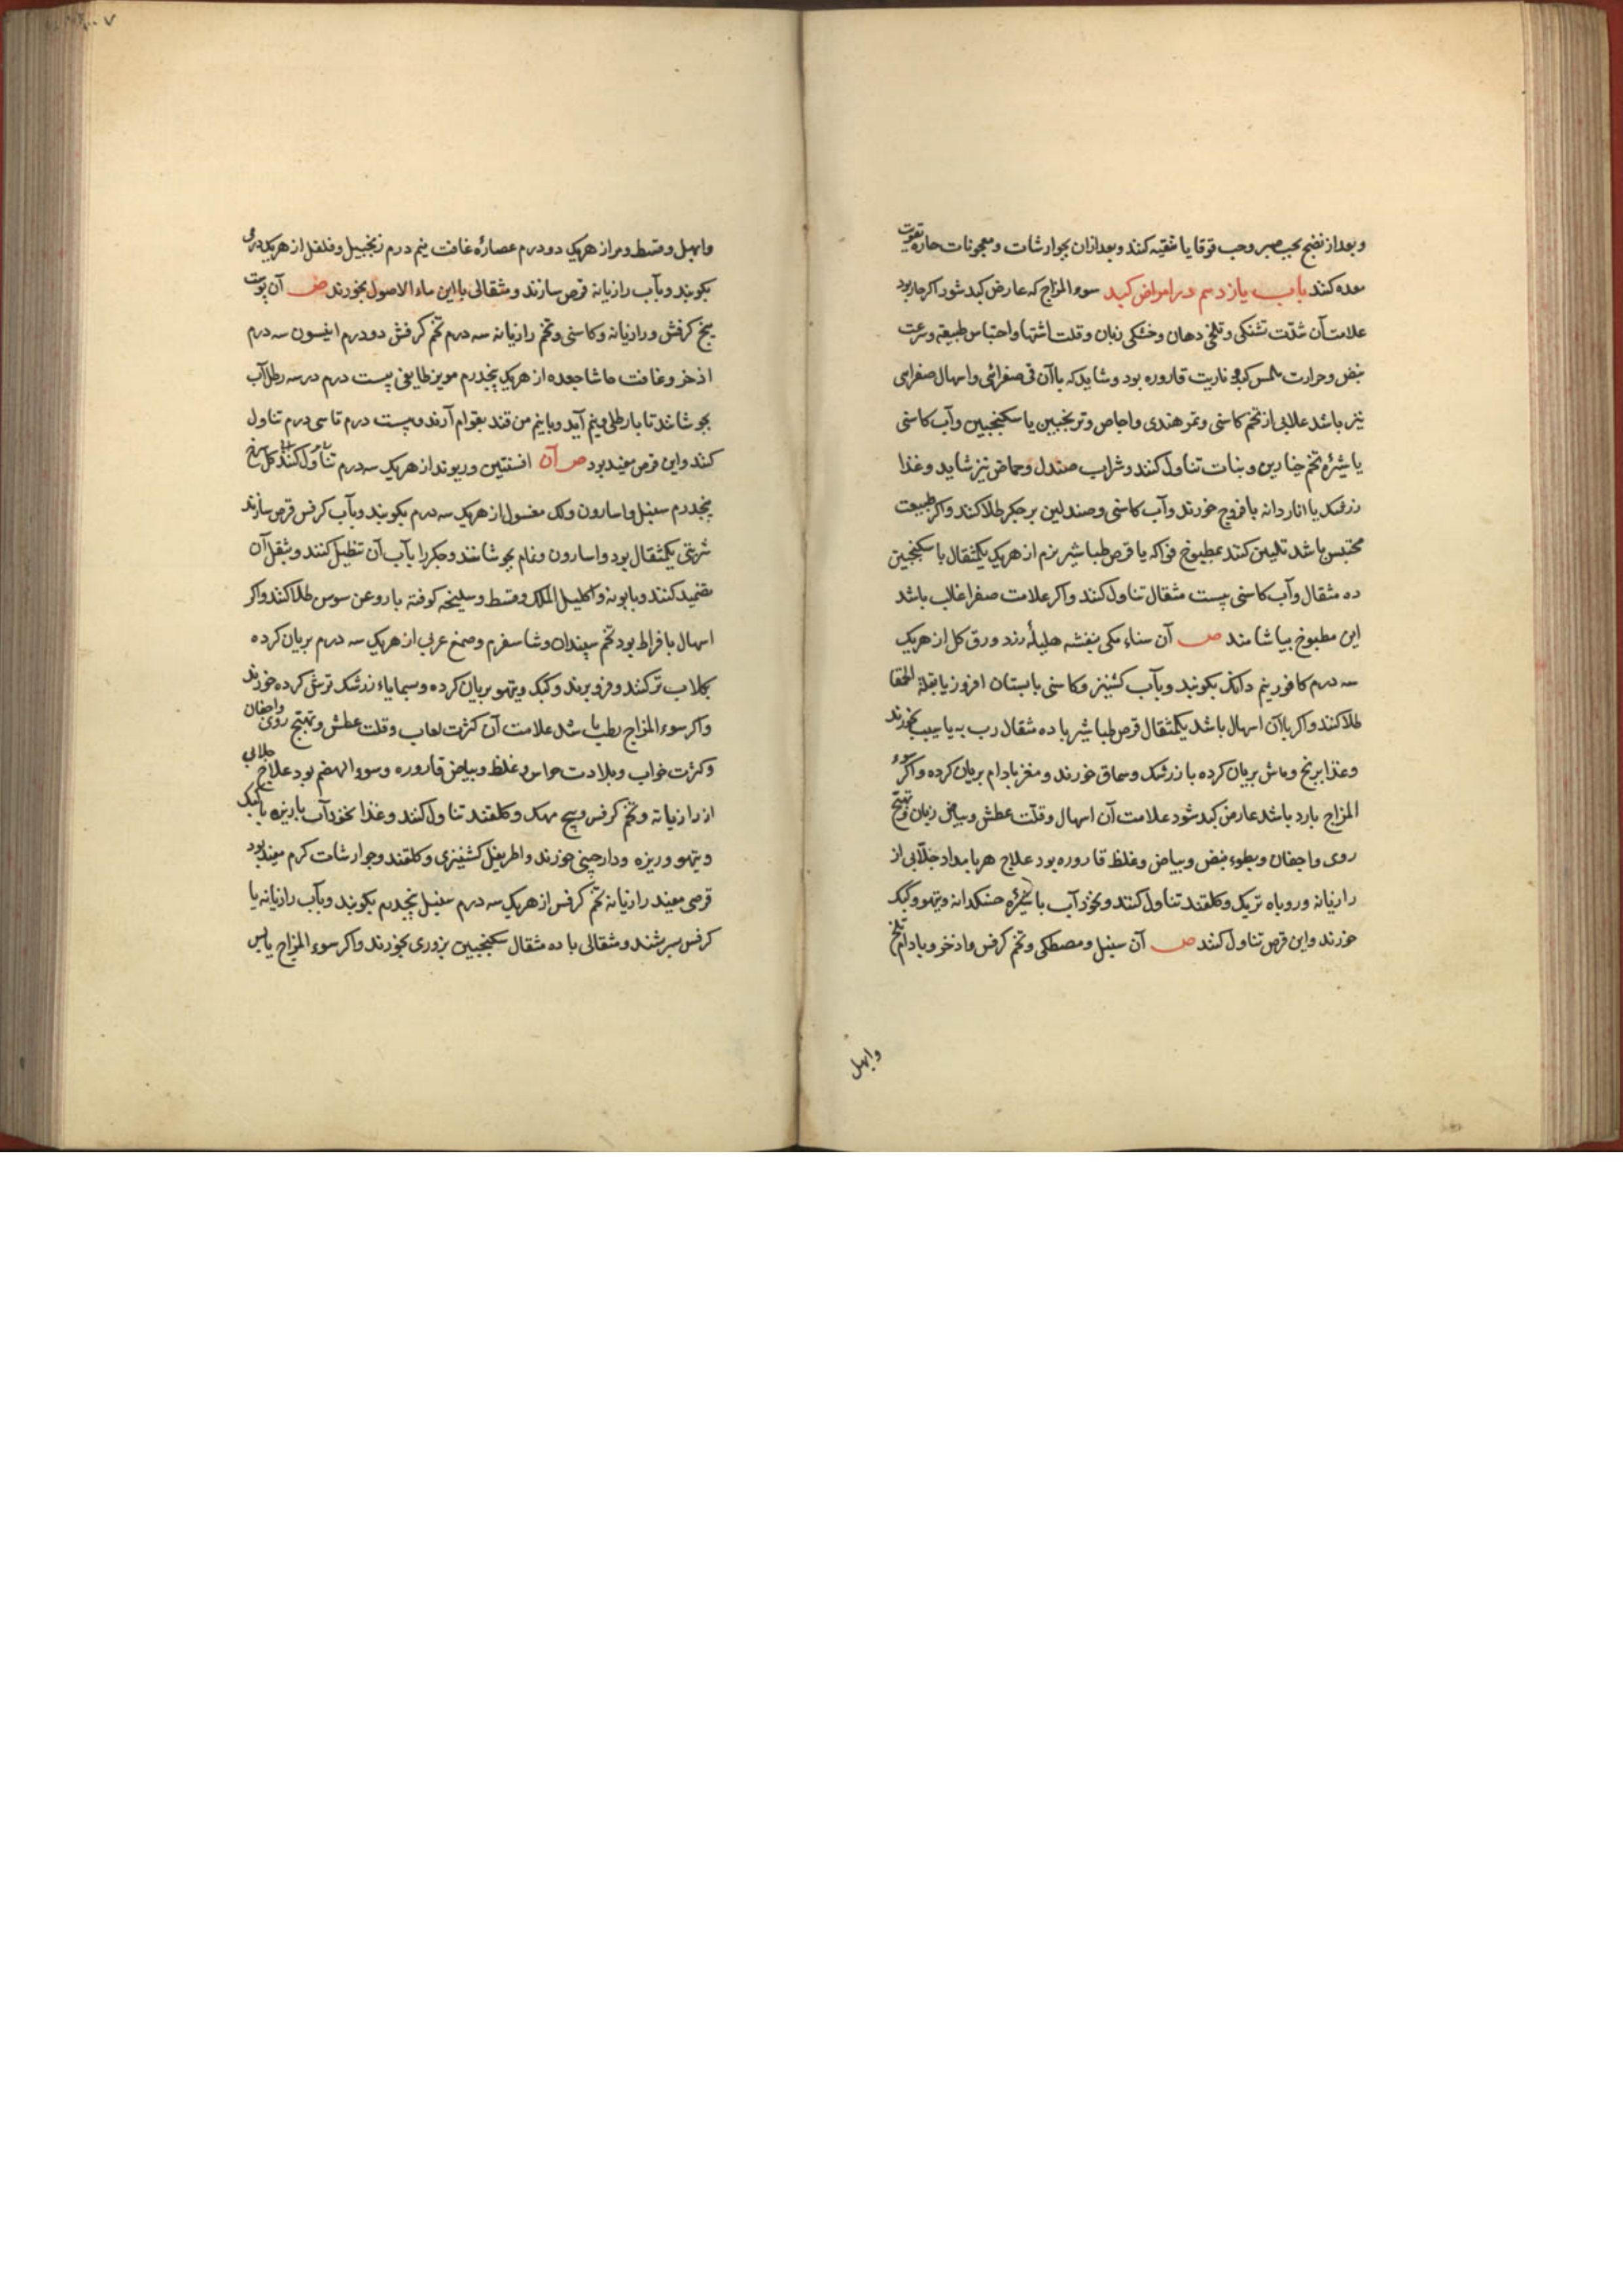 وبعد از نضج بحب صبر وحب قوقایا تنقیه کنند وبعد ازان بجوارشات ومعجونات حاره تقویت
معده کنند باب یازدهم در امراض کبد سوء المزاج که عارض کبد شود اکر حار بود
علامت آن شدّت تشنکی وتلخی دهان وخشکی زبان وقلت اشتها واحتباس طبیعة وسرعت
نبض وحرارت ملمس کبد وناریت قاروره بود وشاید که باآن قی صفرائی واسهال صفرایی
نیز باشد علابی از تخم کاسنی وتمر هندی واجاص وترنجبین یا سکنجبین وآب کاسنی
یا شیرۀ تخم خیارین ونبات تناول کنند وشراب صندل وحماض نیز شاید وغذا
زرشک یا اناردانه بافروج خورند وآب کاسنی وصندلین بر جکر طلا کنند واکر طبیعت
محتبس باشد تلیین کنند بمطبوخ فواکه یا قرص طباشیر بزم از هریک یکمثقال باسکنجبین
ده مثقال وآب کاسنی بیست مثقال تناول کنند واکر علامت صفرا غالب باشد
این مطبوخ بیاشامند ص آن سناء مکی بنفشه هلیلۀ زرد ورق کل از هریک
سه درم کافور نیم دانک بکوبند وبآب کشنیز وکاسنی یا بستان افروز یا بقلة الحمقا
طلا کنند واکر باآن اسهال باشد یکمثقال قرص طباشیر با ده مثقال رب به یا سیب بخورند
وغذا برنج وماش بریان کرده با زرشک وسماق خورند ومغز بادام بریان کرده واکر سوء
المزاج بارد باشد عارض کبد شود علامت آن اسهال وقلت عطش وبیاض زبان وتهیّج
روی واجفان وبطوء نبض وبیاض وغلظ قاروره بود علاج هر بامداد جلّابی از
رازیانه وروباه تریک وکلقند تناول کنند ونخودآب با شیرۀ خسکدانه وتیهو وکبک
خورند واین قرص تناول کنند ص آن سنبل ومصطکی وتخم کرفس واذخر وبادام تلخ
وابهل
وابهل وقسط ومر از هریک دو درم عصارۀ غافت نیم درم زنجبیل وفلفل از هریک درمی
بکوبند وبآب رازیانه قرص سازند ومثقالی بااین ماء الاصول بخورند ص آن پوست
بیخ کرفش ورازیانه وکاسنی وتخم رازیانه سه درم تخم کرفش دو درم انیسون سه درم
اذخر وغافت حاشا جعده از هریک پنجدرم مویز طایفی بیست درم در سه رطل آب
بجوشانند تا با رطلی ونیم آید وبانیم من قند بقوام آرند وبیست درم تا سی درم تناول
کنند واین قرص مفید بود ص آن افسنتین وریوند از هریک سه درم تناول کنند کل سرخ
پنجدرم سنبل واسارون ولک مغسول از هریک سه درم بکوبند وبآب کرفس قرص سازند
شربتی یکمثقال بود واسارون ونمام بجوشانند وجکر را بآب آن تنطیل کنند وبثقل آن
تضمید کنند وبابونه واکلیل الملک وقسط وسلیخه کوفته باروغن سوسن طلا کنند واکر
اسهال بافراط بود تخم سپندان وشاسفرم وصمغ عربی از هریک سه درم بریان کرده
بکلاب تر کنند وفرو برند وکبک وتیهو بریان کرده وسمایاء زرشک ترش کرده خورند
واکر سوء المزاج رطب باشد علامت آن کثرت لعاب وقلت عطش وتهیّج روی واجفان
وکثرت خواب وبلادت حواس وغلظ وبیاض قاروره وسوء الهضم بود علاج جلابی
از رازیانه وتخم کرفس وبیخ مهک وکلقند تناول کنند وغذا نخودآب بازیره یا کبک
وتیهو وزیره ودارچینی خورند واطریفل کشنیزی وکلقند وجوارشات کرم مفید بود
قرصی مفید رازیانه تخم کرفس از هریک سه درم سنبل پنجدرم بکوبند وبآب رازیانه یا
کرفس سرشند ومثقالی با ده مثقال سکنجبین بزوری بخورند واکر سوء المزاج یابس